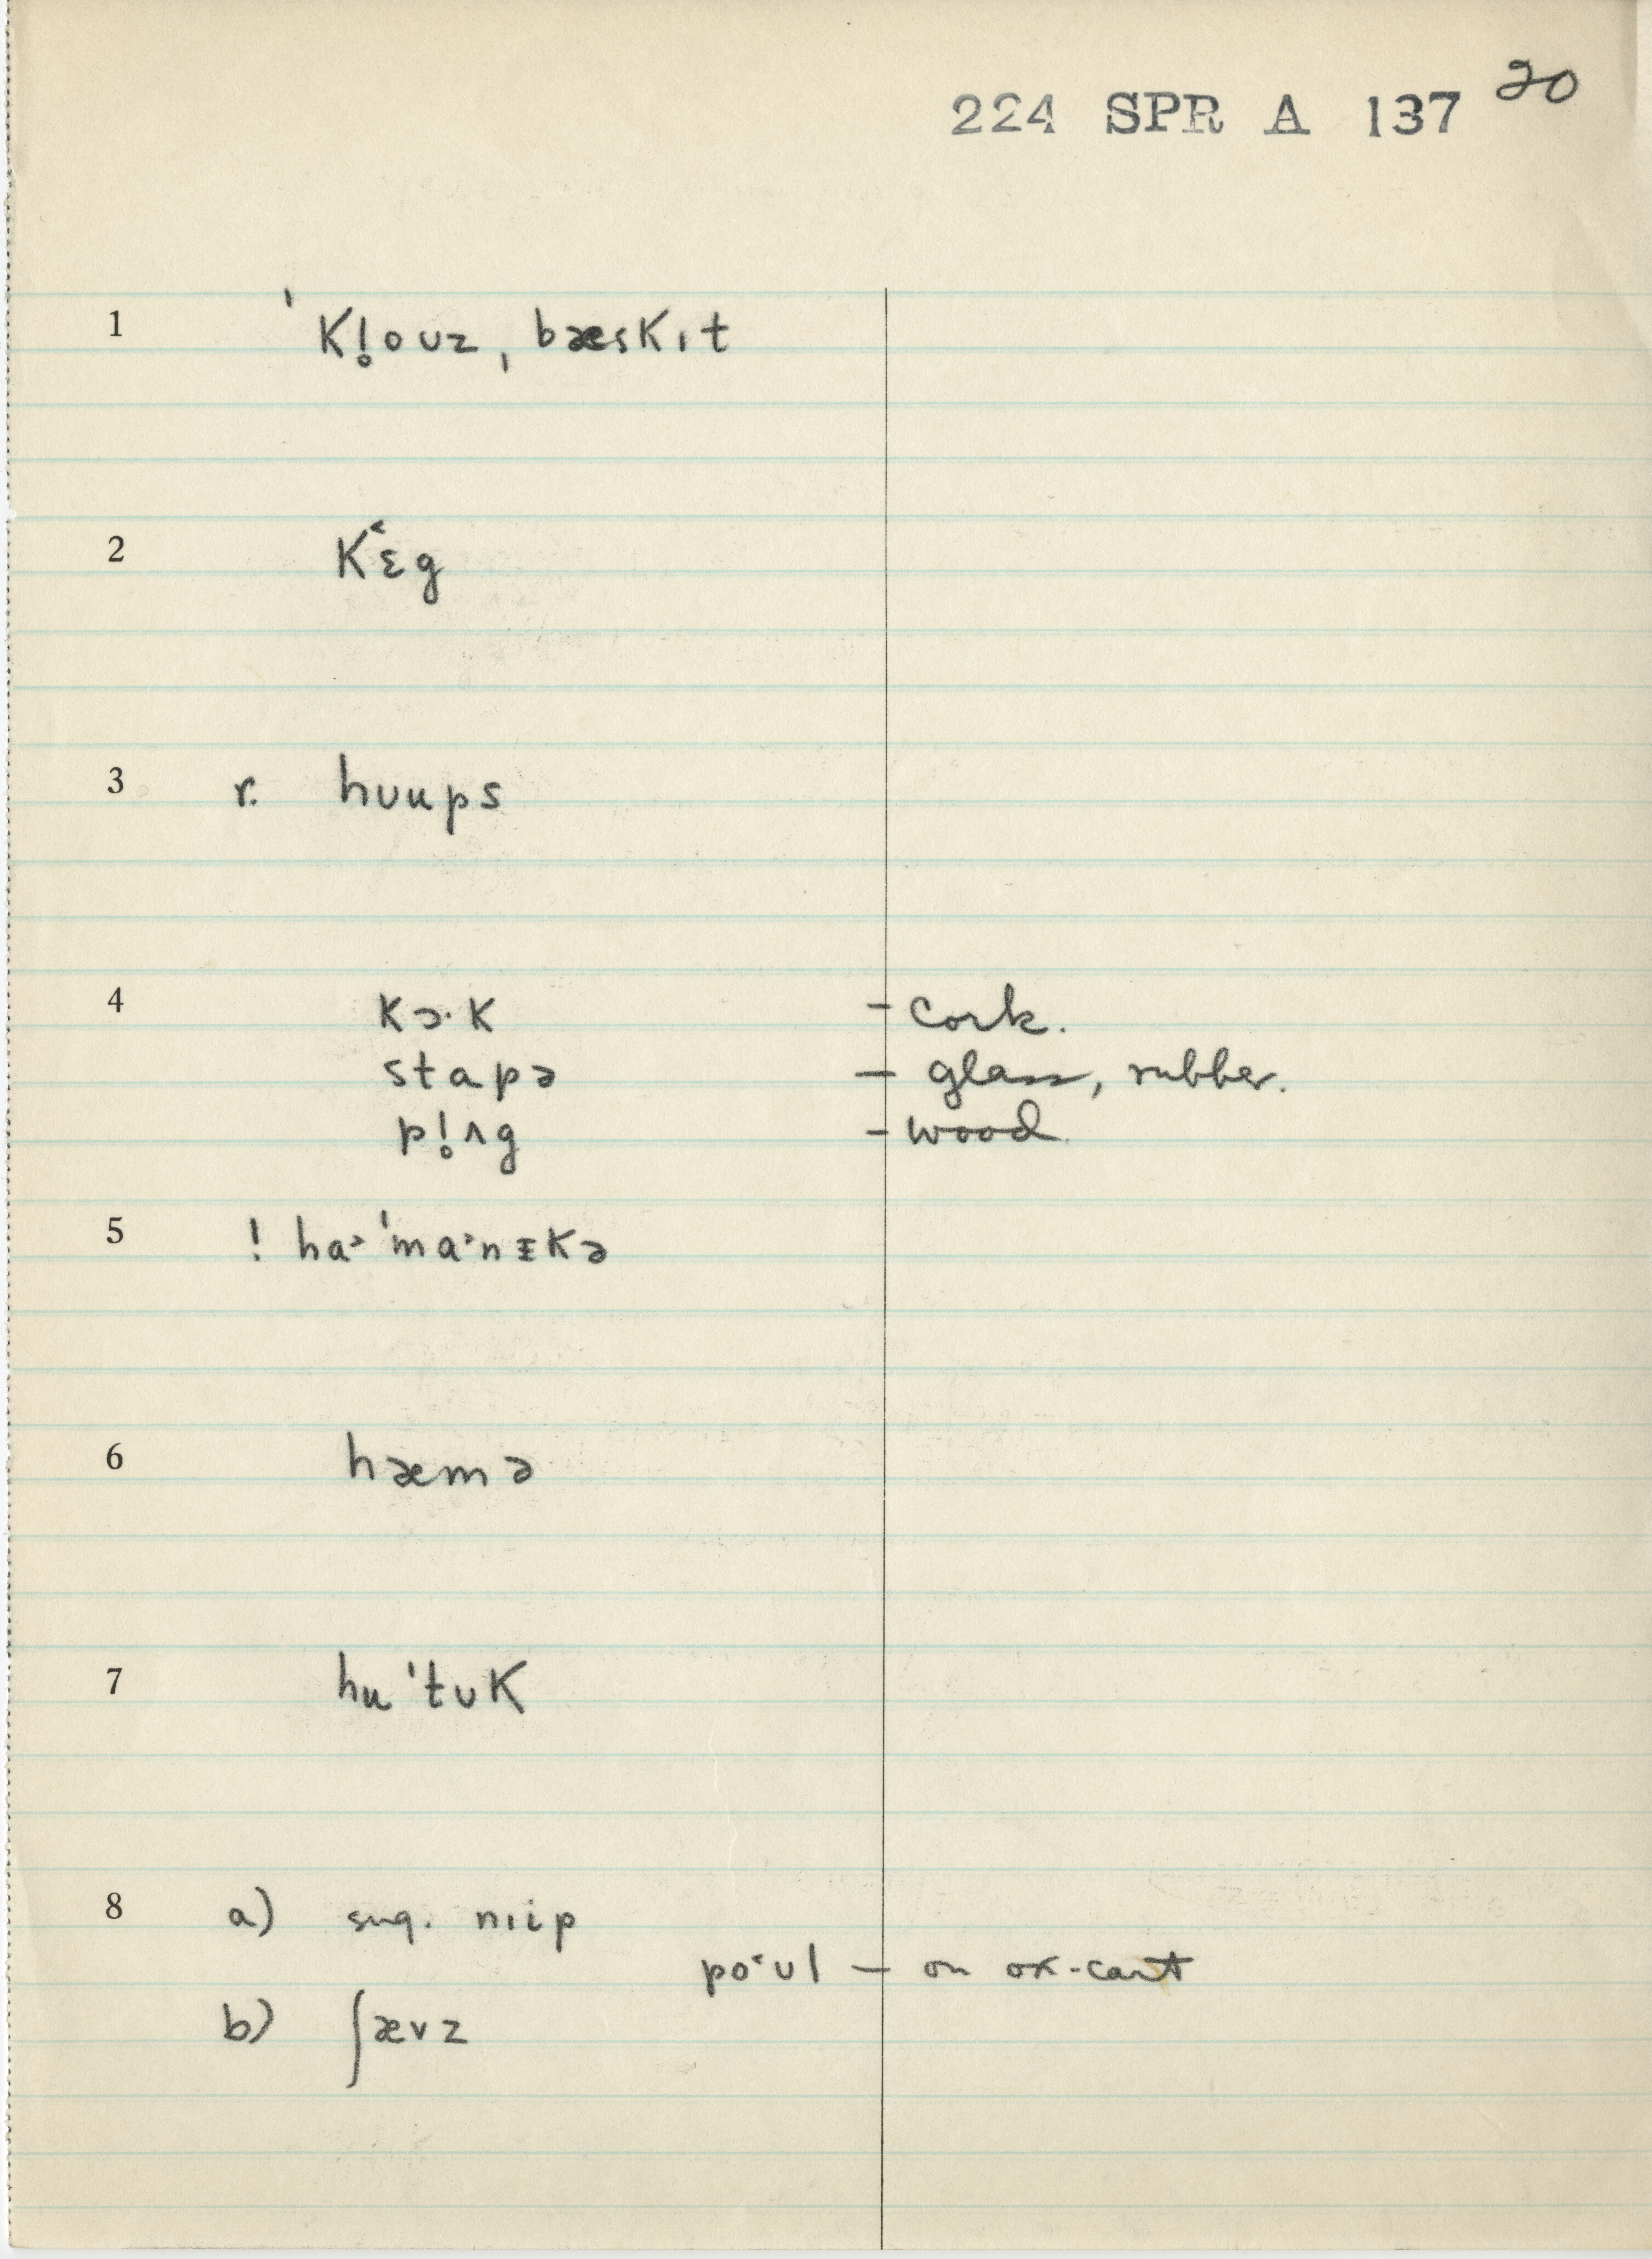 224 SPR A 137 20
1 ˈKl̥ouz ˌbæsKɪt
2 K˂ɛg
3 r. hᴜups
4 Kɔ·K – cork.
stapə – glass, rubber.
pl̥ʌg – wood.
5 ! ha˃ˈma˃nɪKə
6 hæmə
7 huˈtᴜK
8 a) sug. nɪip
po˂ᴜl – on ox-cart
b) ʃævz